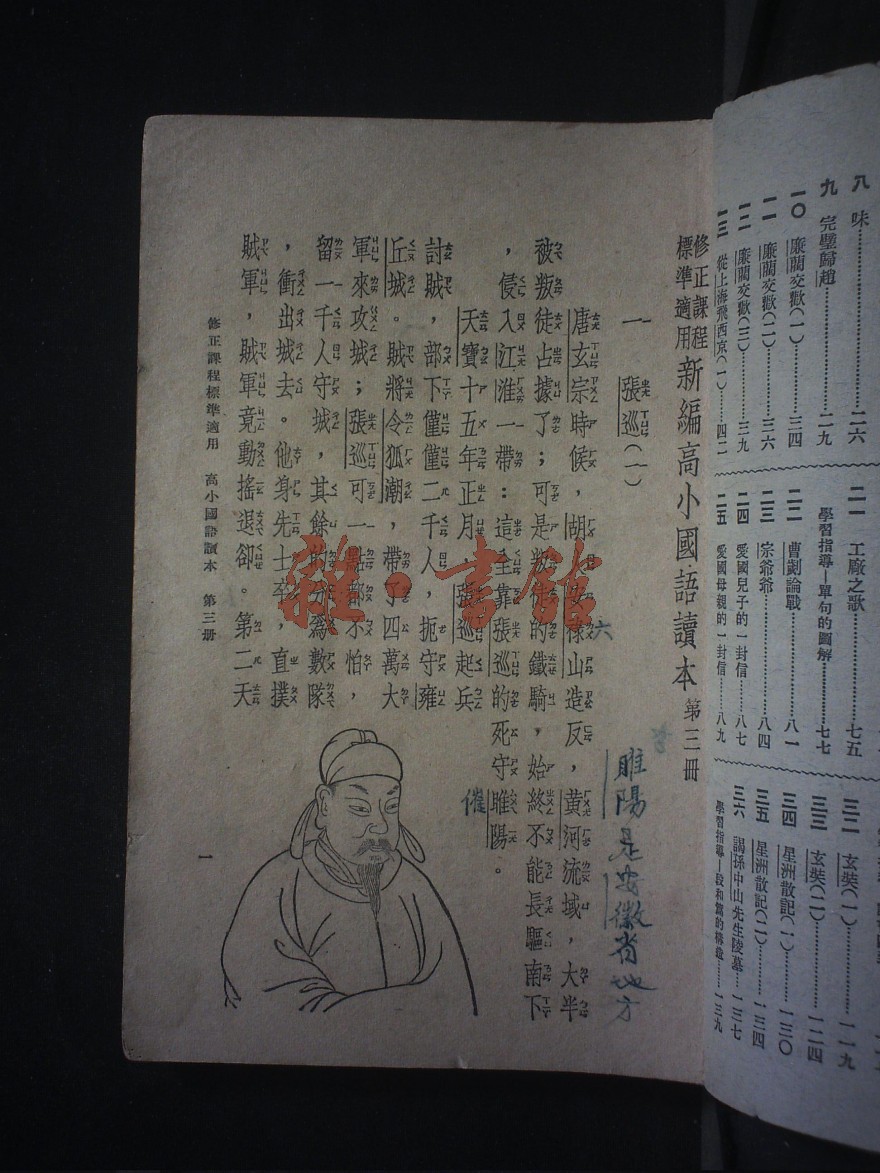 修正課程
標準適用
新編高小國語讀本 第三冊
一 張巡(一)
唐玄宗時候,胡人安祿山造反,黃河流域,大半
被叛徒占據了;可是叛徒的鐵騎,始終不能長驅南下
,侵入江淮一帶:這全靠張巡的死守睢陽。
天寶十五年正月,張巡起兵
討賊,部下僅僅二千人,扼守雍
丘城。賊將令狐潮,帶了四萬大
軍來攻城;張巡可一點都不怕,
留一千人守城,其餘的分為數隊
,衝出城去。他身先士卒,直撲
賊軍,賊軍竟動搖退卻。第二天
修正課程標準適用 高小國語讀本 第三冊
一
睢陽是安徽省地方
六
催
雜·書館
八 味 二六
九 完璧歸趙 二九
一〇 廉藺交歡(一) 三四
一一 廉藺交歡(二) 三六
一二 廉藺交歡(三) 三九
一三 從上海飛西京(一) 四二
二一 工廠之歌 七五
學習指導—單句的圖解 七七
二二 曹劌論戰 八一
二三 宗爺爺 八四
二四 愛國兒子的一封信 八七
二五 愛國母親的一封信 八九
三二 玄奘(一) 一一九
三三 玄奘(二) 一二四
三四 星洲散記(一) 一三〇
三五 星洲散記(二) 一三四
三六 謁孫中山先生陵墓 一三七
學習指導—段和篇的構造 一三九